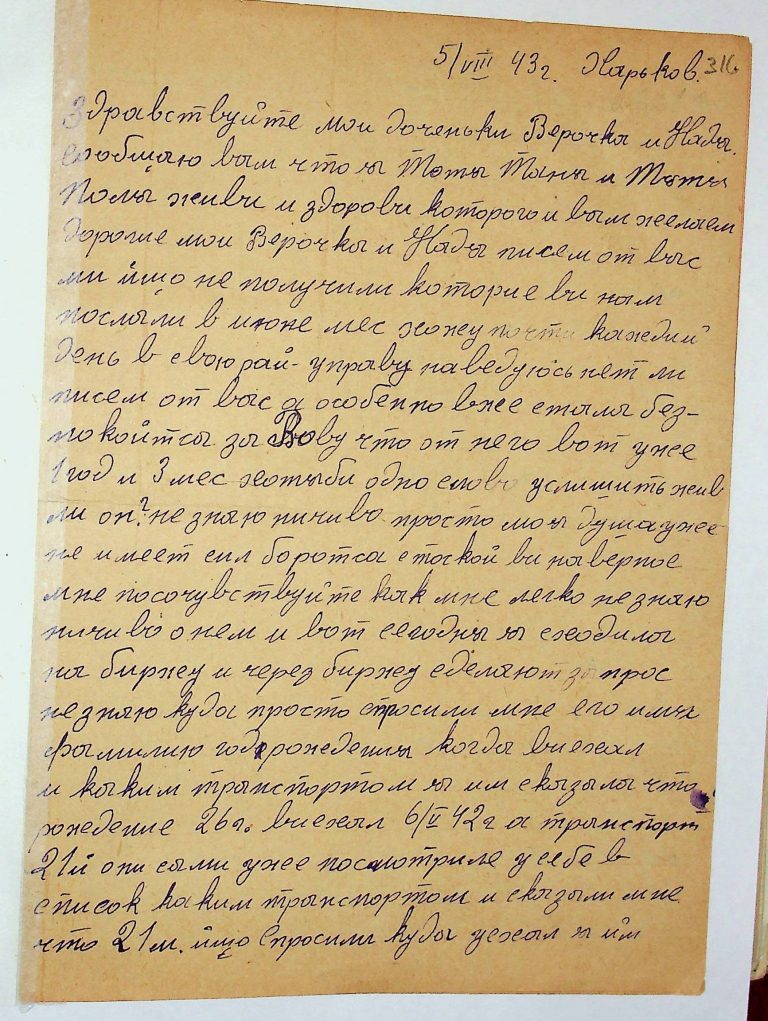 5/VIII 43г. Харьков. 316
Здравствуйте мои доченьки Верочка и Надя.
сообщаю вам что я Тотя Таня и Тотя
Поля живи и здорови которого и вам желаем
дорогие мои Верочка и Надя писем от вас
ми йшо не получили которие ви нам
послали в июне мес хожу почти каждий
день в свою рай-управу наведуюсь нет ли
писем от вас а особенно вже стала без-
покойтса за Вову что от него вот уже
1 год и 3 мес хотяби одно слово услишить жив
ли он? не знаю ничиво просто моя душа уже
не имеет сил боротса стоской ви наверное
мне посочувствуйте как мне легко не знаю
ничиво о нем и вот сегодня я сходила
на биржу и через биржу сделают запрос
не знаю куда просто спросили мне его имя
фамилию год рождения когда виехал
и каким транспортом я им сказала что
рождение 26г. виехал 6/V 42г а транспорт
21й они сами уже посмотриле у себе в
список каким транспортом и сказали мне
что 21м. йшо спросили куда уехал я им